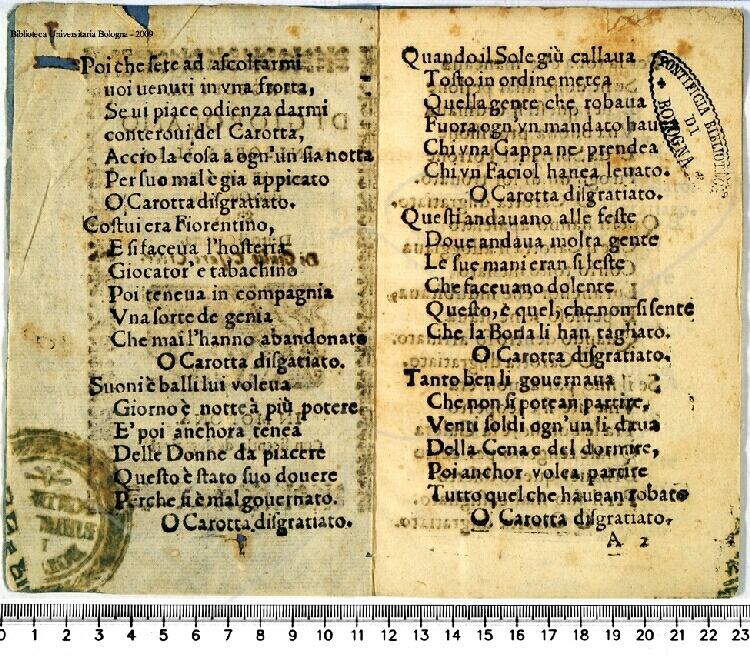 Biblioteca Universitaria Bologna - 2009
Poi che sete ad ascoltarmi
uoi uenuti in vna frotta,
Se ui piace odienza darmi
conteroui del Carotta,
Accio la cosa a ogn'un sia notta
Per suo mal è gia appicato
O Carotta disgratiato.
Costui era Fiorentino,
E si faceua l'hosteria
Giocator' e tabachino
Poi teneua in compagnia
Vna sorte de genia
Che mai l'hanno abandonato
O Carotta disgatiato.
Suoni è balli lui voleua
Giorno è notte à più potere
E' poi anchora tenea
Delle Donne da piacere
Questo è stato suo douere
Perche si è mal gouernato.
O Carotta disgratiato.
Quando il Sole giù callaua
Tosto in ordine metea
Quella gente che robaua
Fuora ogn'vn mandato hau
Chi vna Cappa ne prendea
Chi vn Faciol hauea leuato.
O Carotta disgratiato.
Questi andauano alle feste
Doue andaua molta gente
Le sue mani eran si leste
Che faceuano dolente
Questo, è quel, che non si sente
Che la Borsa li han tagliato.
O Carotta disgratiato.
Tanto ben li gouernaua
Che non si potean partire,
Venti soldi ogn'un li daua
Della Cena e del dormire,
Poi anchor volea partire
Tutto quel che hauean robato
O Carotta disgratiato.
A 2
PONTIFICIA BIBLIOTECA
DI
BOLOGNA
0 1 2 3 4 5 6 7 8 9 10 11 12 13 14 15 16 17 18 19 20 21 22 23